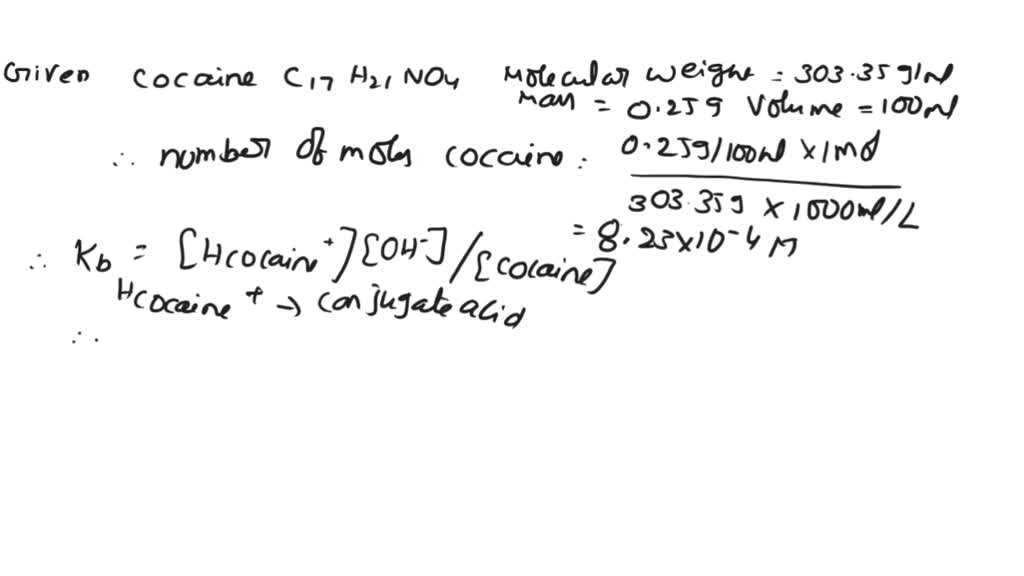 Given cocaine C17 H21 NO4 Molecular weight = 303.35 g/ml
Mass = 0.25g Volume = 100ml
∴ number of moles cocaine : 0.25g/100ml x 1mol
303.35g x 1000ml/L
= 8.23x10-4 M
∴ Kb = [Hcocain+][OH-]/[cocaine]
Hcocaine + → conjugate acid
∴